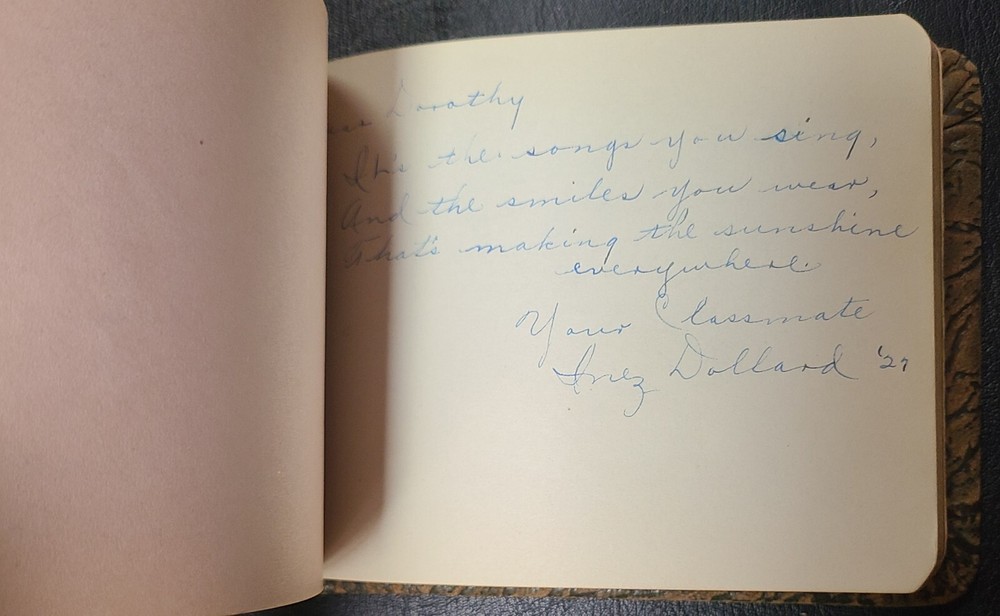 Dorothy
It's the songs you sing,
And the smiles you wear,
That's making the sunshine
everywhere.
Your Classmate
Inez Dollard '27